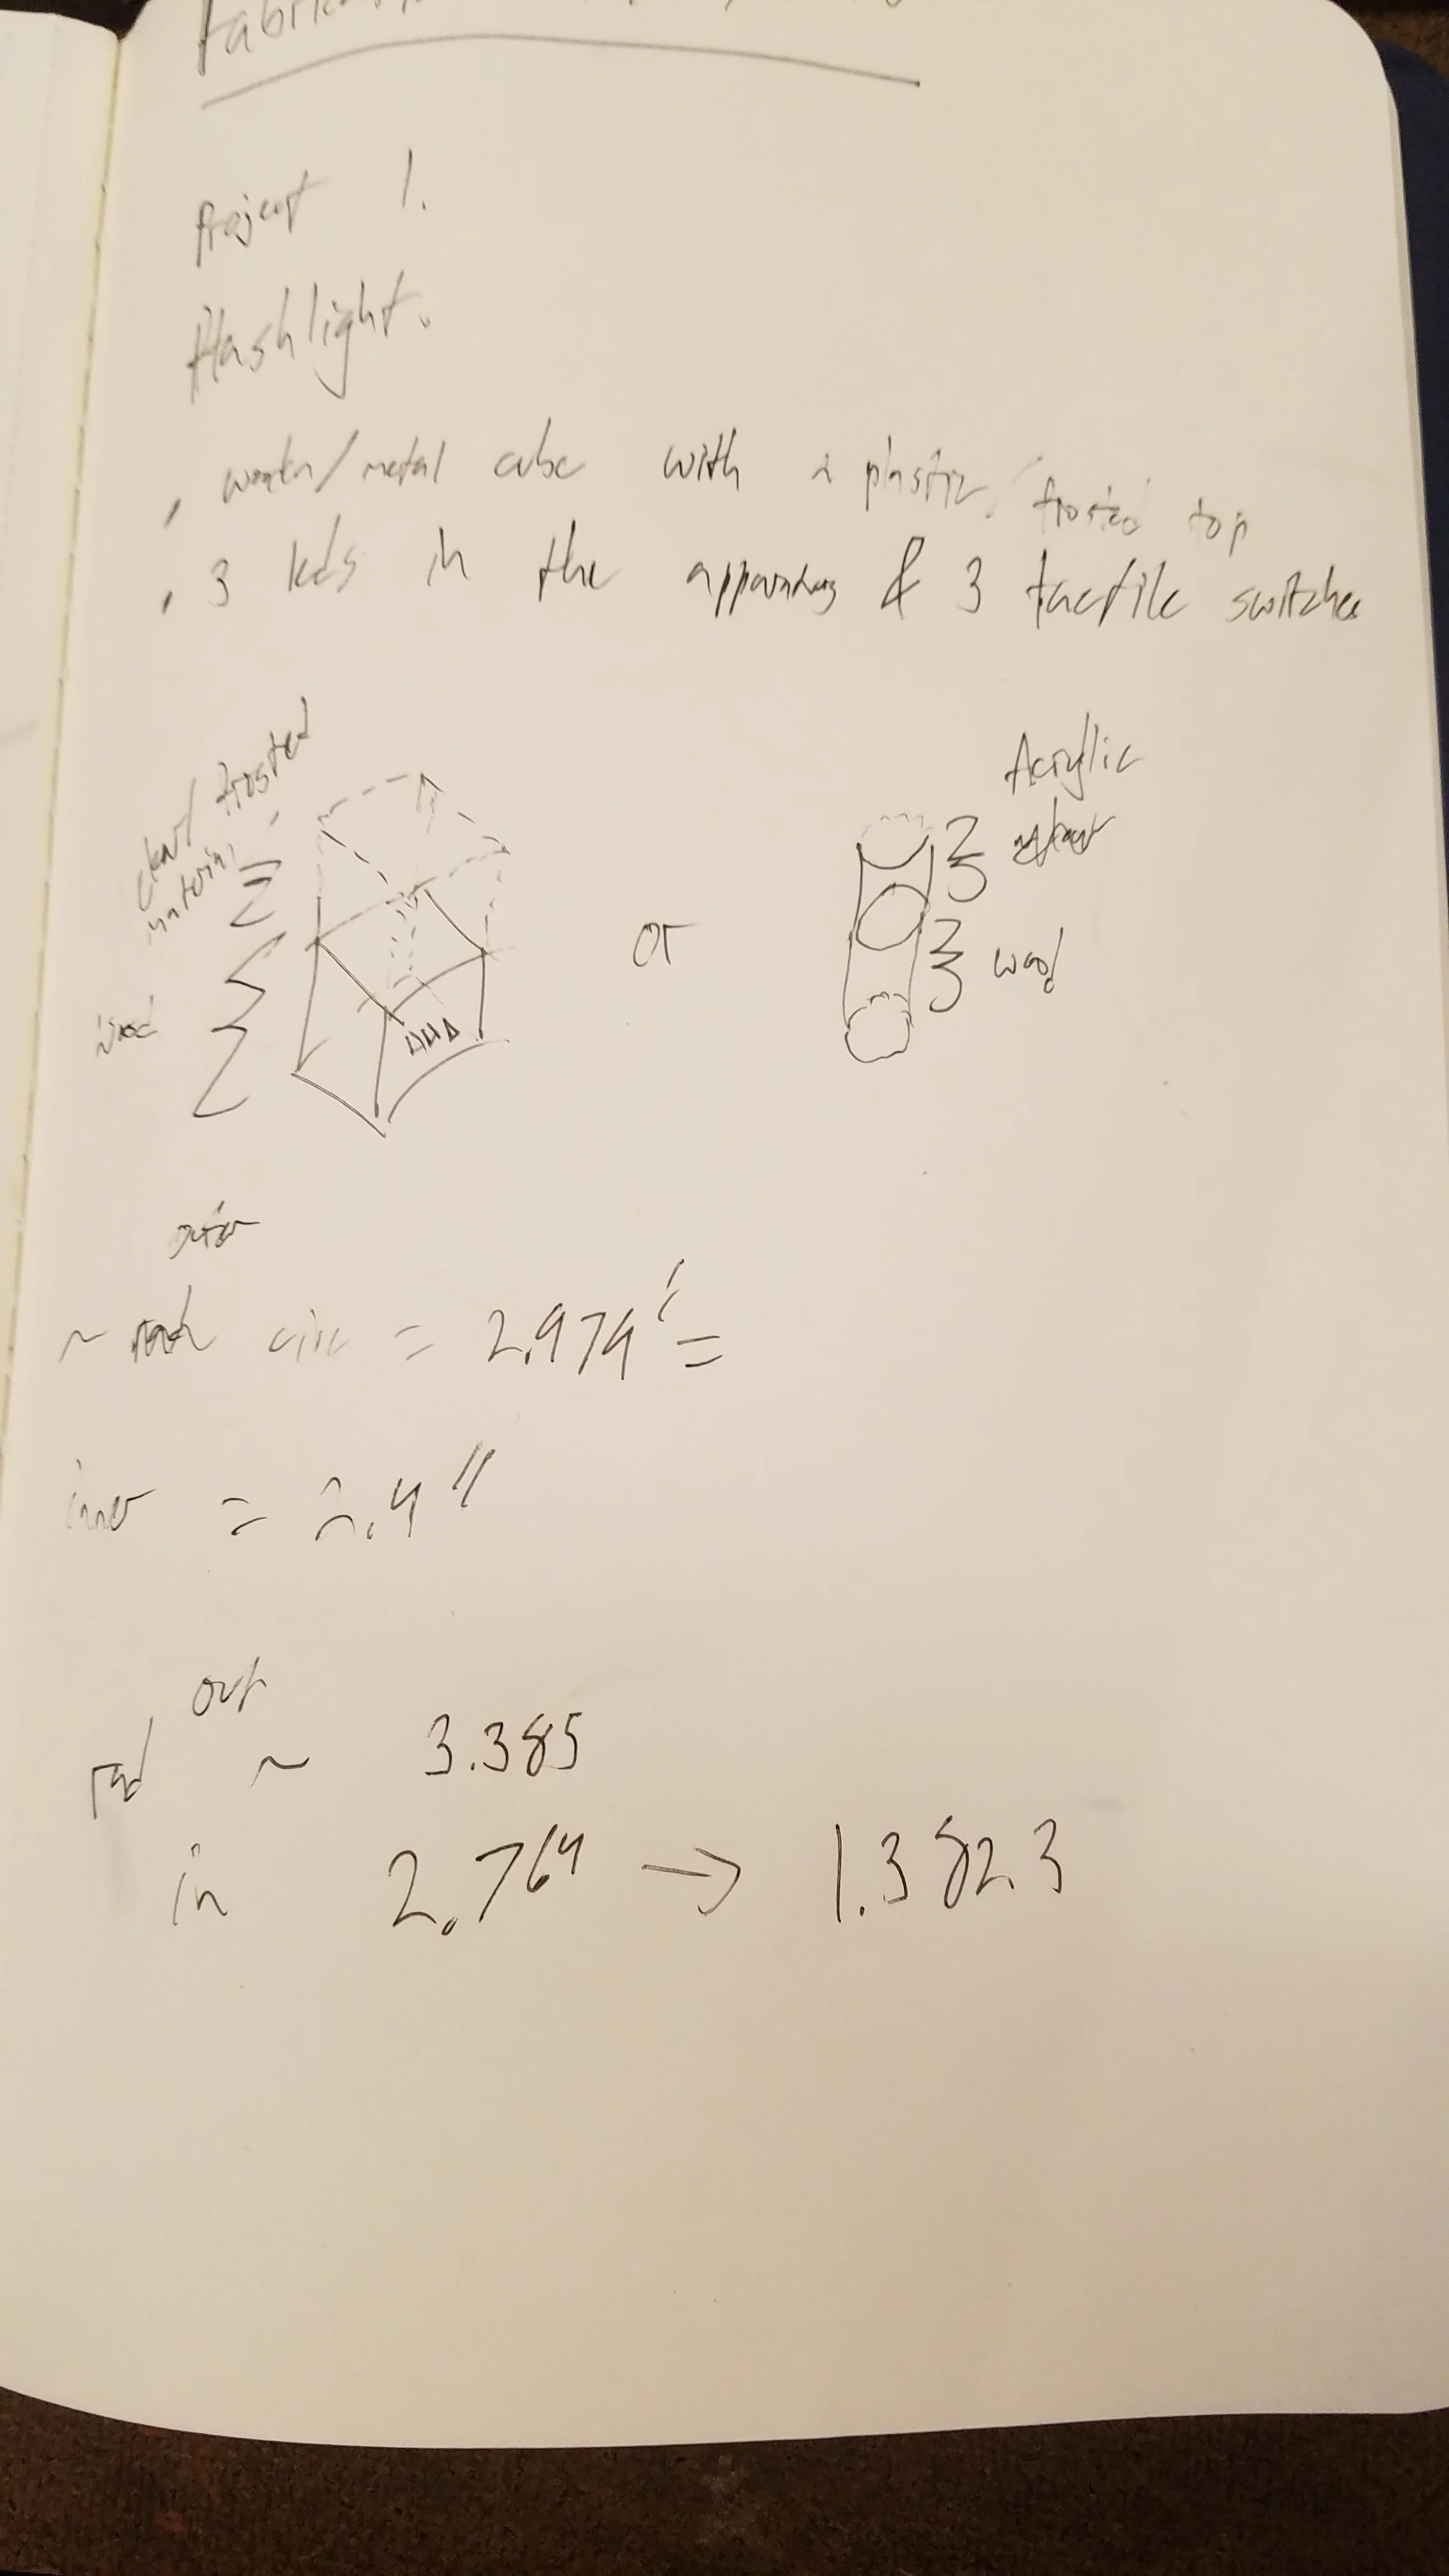 Project 1.
flashlight.
wooden/metal cube with a plastic/frosted top
3 leds in the apparatus & 3 tactile switches
clear/frosted
material
Acrylic
or
wood
wood
outer
~ circ = 2.979" =
inner = 2.4"
out
rad ~ 3.385
in 2.764 → 1.3823